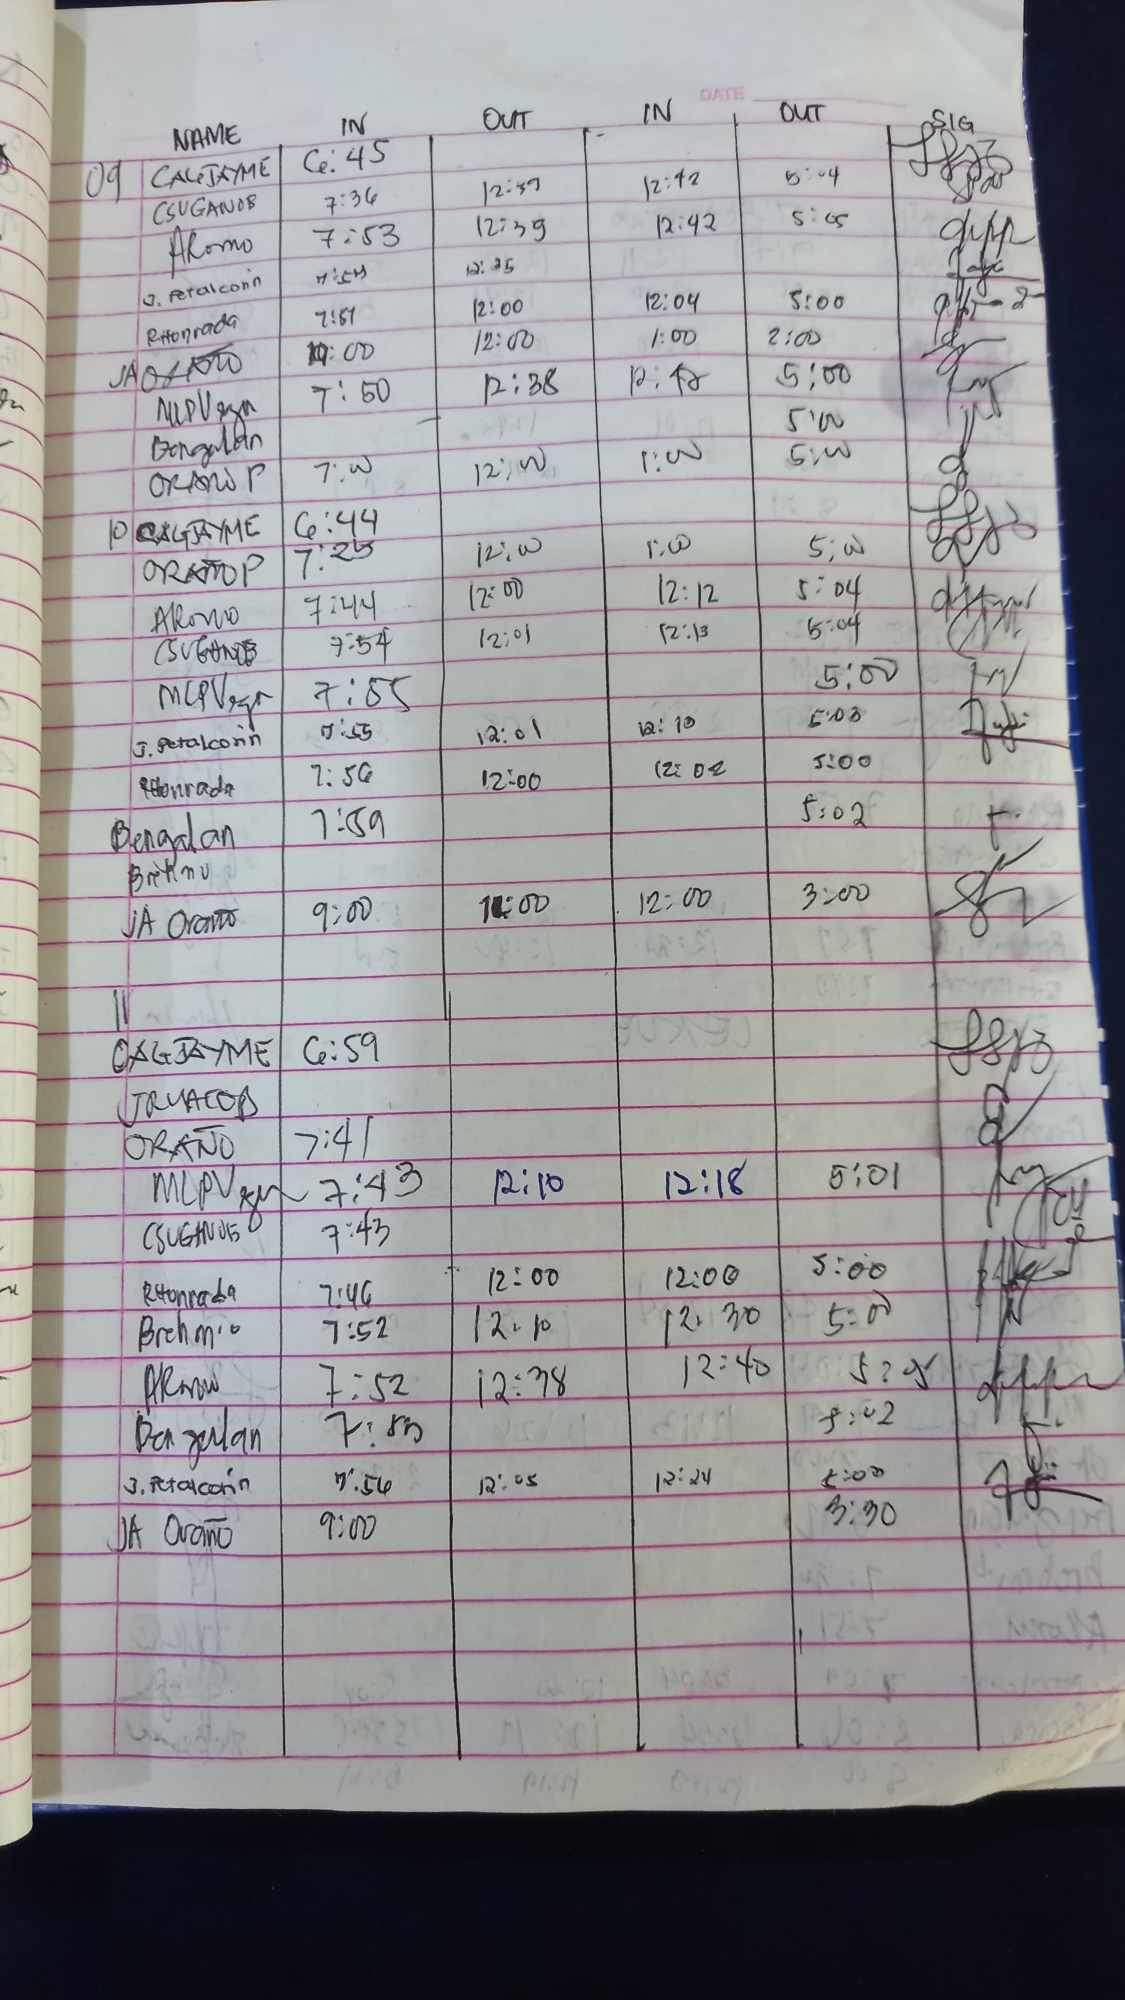 DATE
NAME IN OUT IN OUT SIG
09 CAGJAYME 6:45
CSUGANOB 7:36 12:39 12:42 5:04
ARomo 7:53 12:39 12:42 5:05
J. Petalcorin 12:25
RHonrada 7:51 12:00 12:04 5:00
JA ORAÑO :00 12:00 1:00 2:00
MLPV 7:50 12:38 12:42 5:00
Bengalan 5:00
ORAÑO P 7:00 12:00 1:00 5:00
10 CAGJAYME 6:44
ORAÑO P 7:25 12:00 1:00 5:00
ARomo 7:44 12:00 12:12 5:04
CSUGANOB 7:54 12:01 12:13 5:04
MLPV 7:55 5:00
J. Petalcorin 7:55 12:01 12:10 5:03
RHonrada 7:56 12:00 12:02 5:00
Bengalan 7:59 5:02
JA Oraño 9:00 :00 12:00 3:00
11
CAGJAYME 6:59
ORAÑO 7:41
MLPV 7:43 12:10 12:18 5:01
CSUGANOB 7:43
RHonrada 7:46 12:00 12:00 5:00
7:52 12:10 12:30 5:00
ARomo 7:52 12:38 12:40 5:05
Bengalan 7:53 5:02
J. Petalcorin 7:56 12:05 12:24 5:00
JA Oraño 9:00 3:30